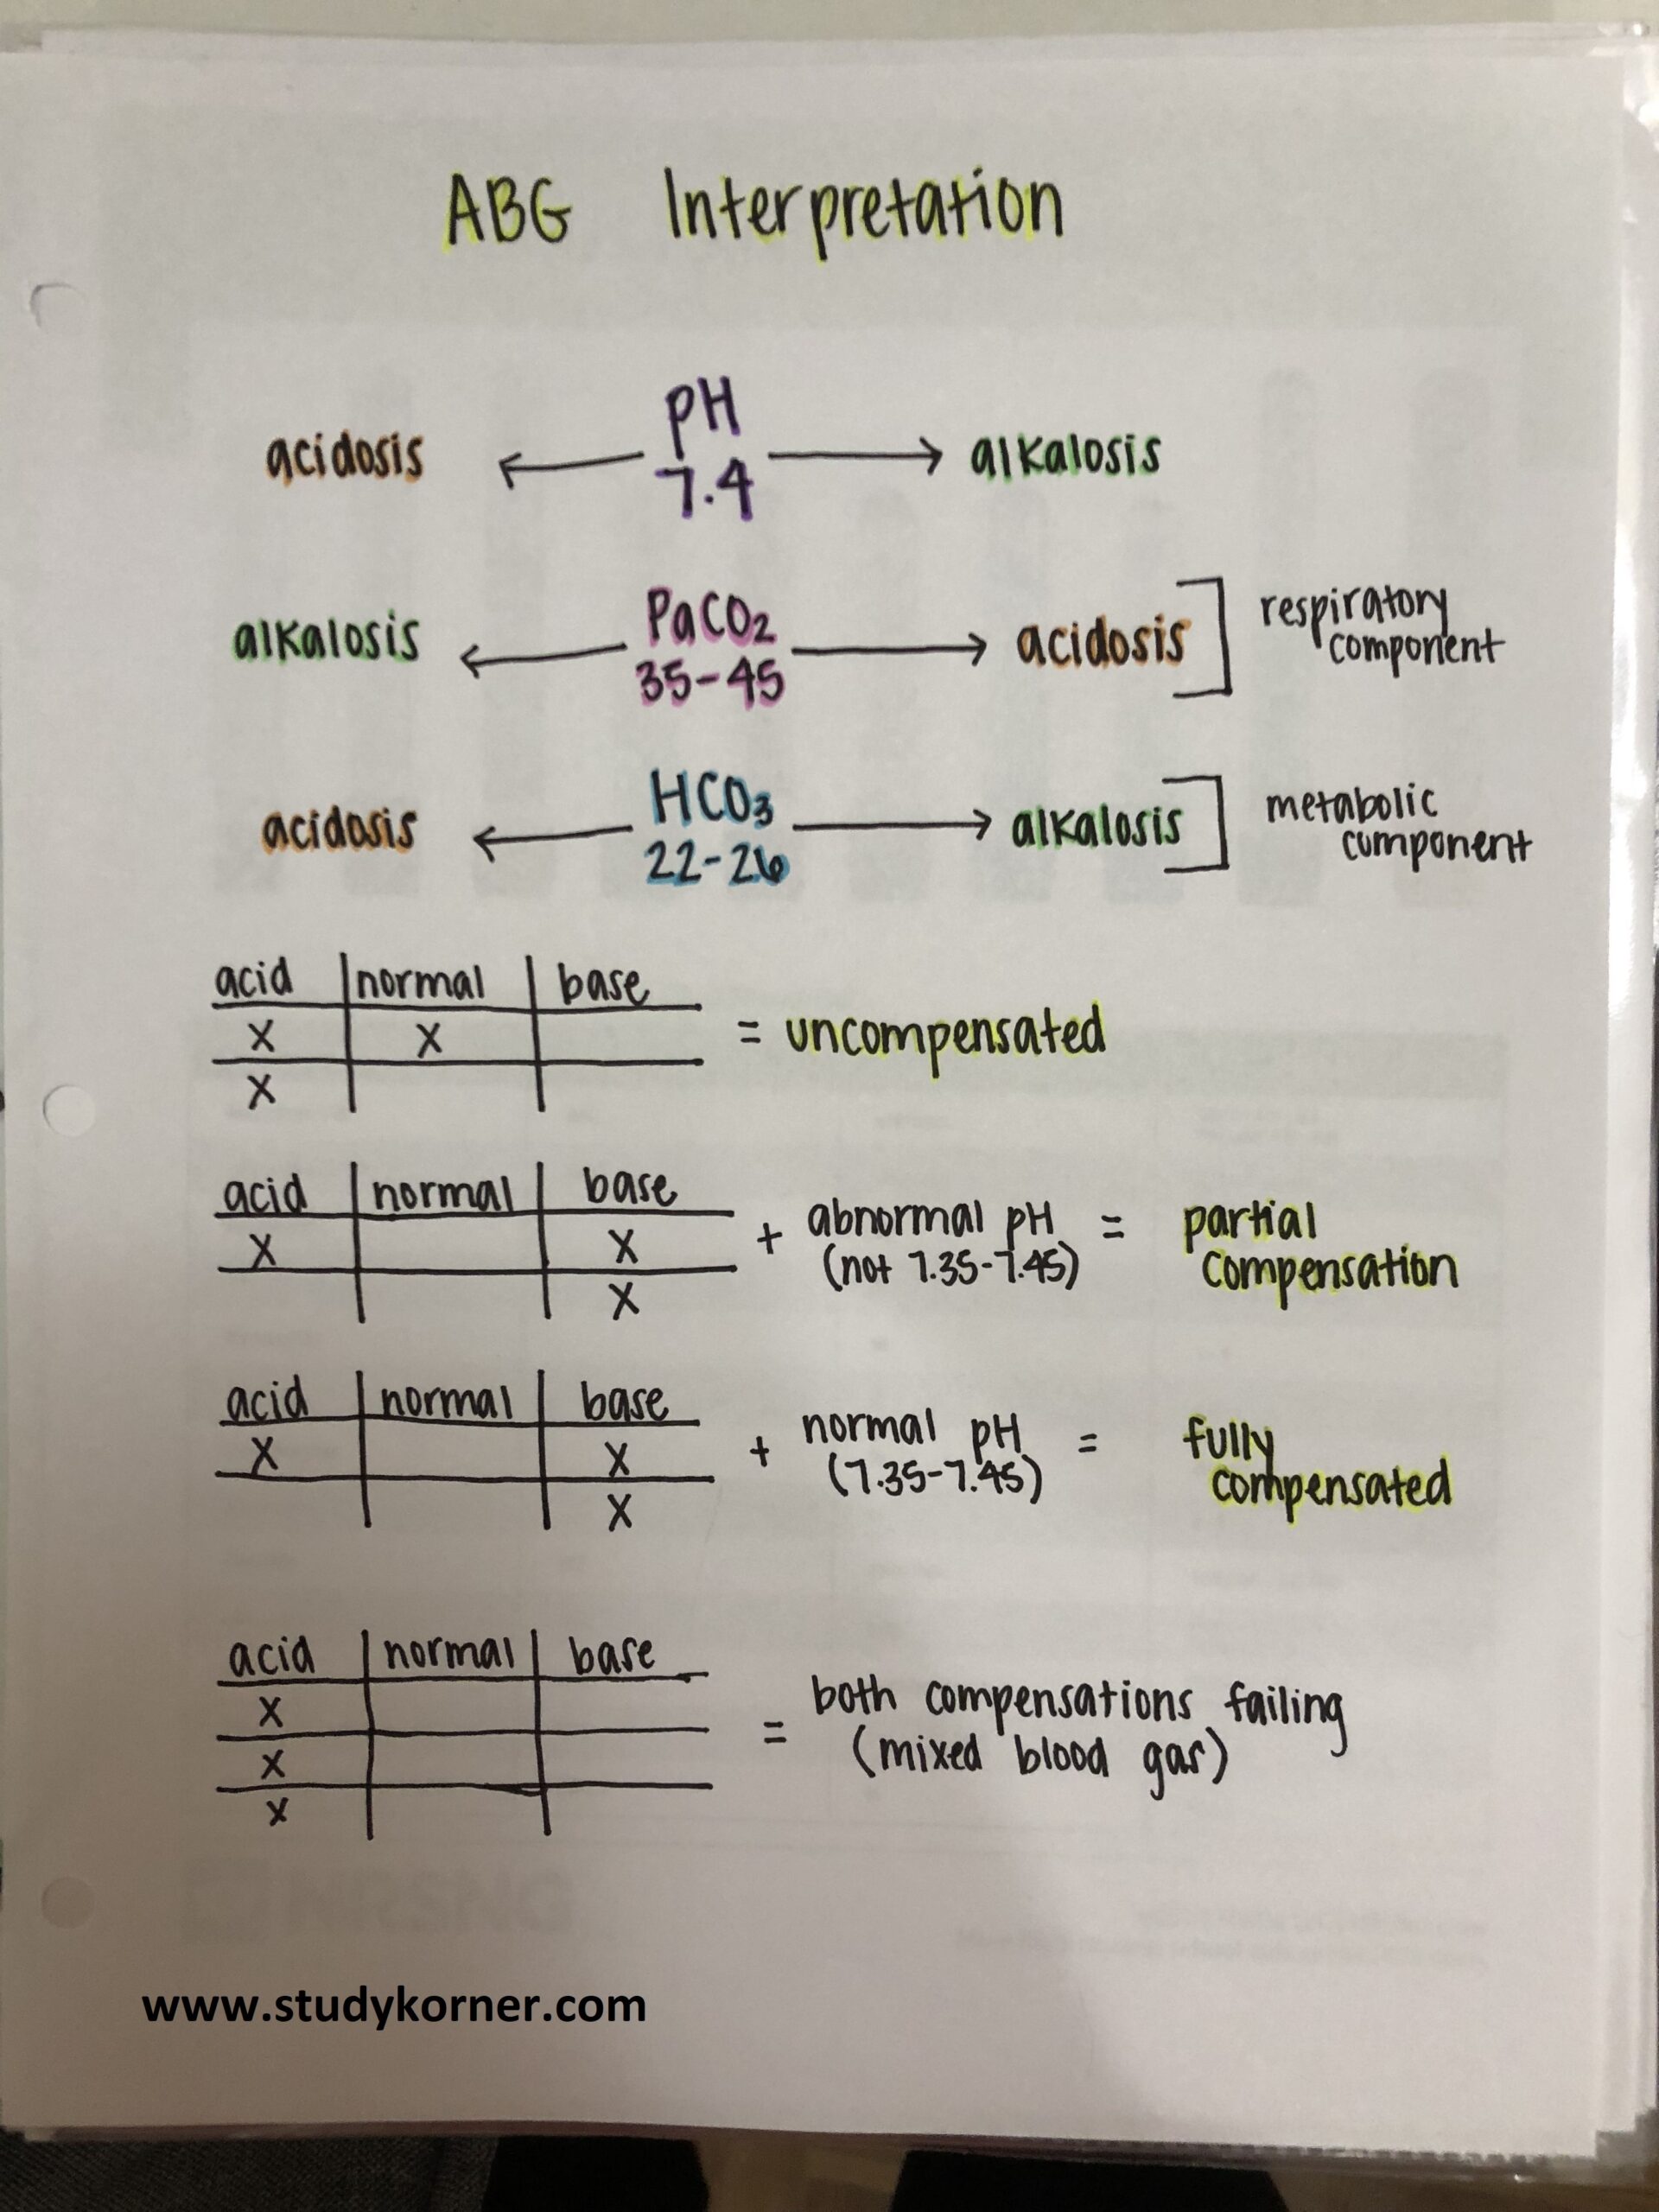 ABG Interpretation
pH
acidosis ← 7.4 → alkalosis
PaCO2
alkalosis ← 35-45 → acidosis ] respiratory
component
HCO3
acidosis ← 22-26 → alkalosis ] metabolic
component
acid | normal | base
X | X | = uncompensated
X
acid | normal | base
X | | X + abnormal pH = partial
(not 7.35-7.45) compensation
X
acid | normal | base
X | | X + normal pH = fully
(7.35-7.45) compensated
X
acid | normal | base
X
X = both compensations failing
(mixed blood gas)
X
www.studykorner.com